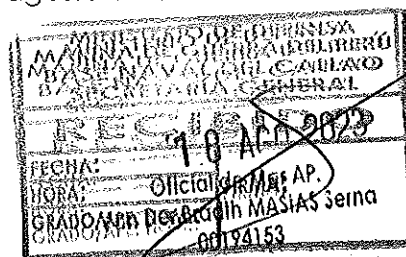 MINISTERIO DE DEFENSA
MARINA DE GUERRA DEL PERÚ
BASE NAVAL DEL CALLAO
SECRETARIA GENERAL
RECIBIDO
10 AGO 2023
FECHA:
HORA: Oficial de Mar AP.
GRADO/ MASIAS Serna
00194153